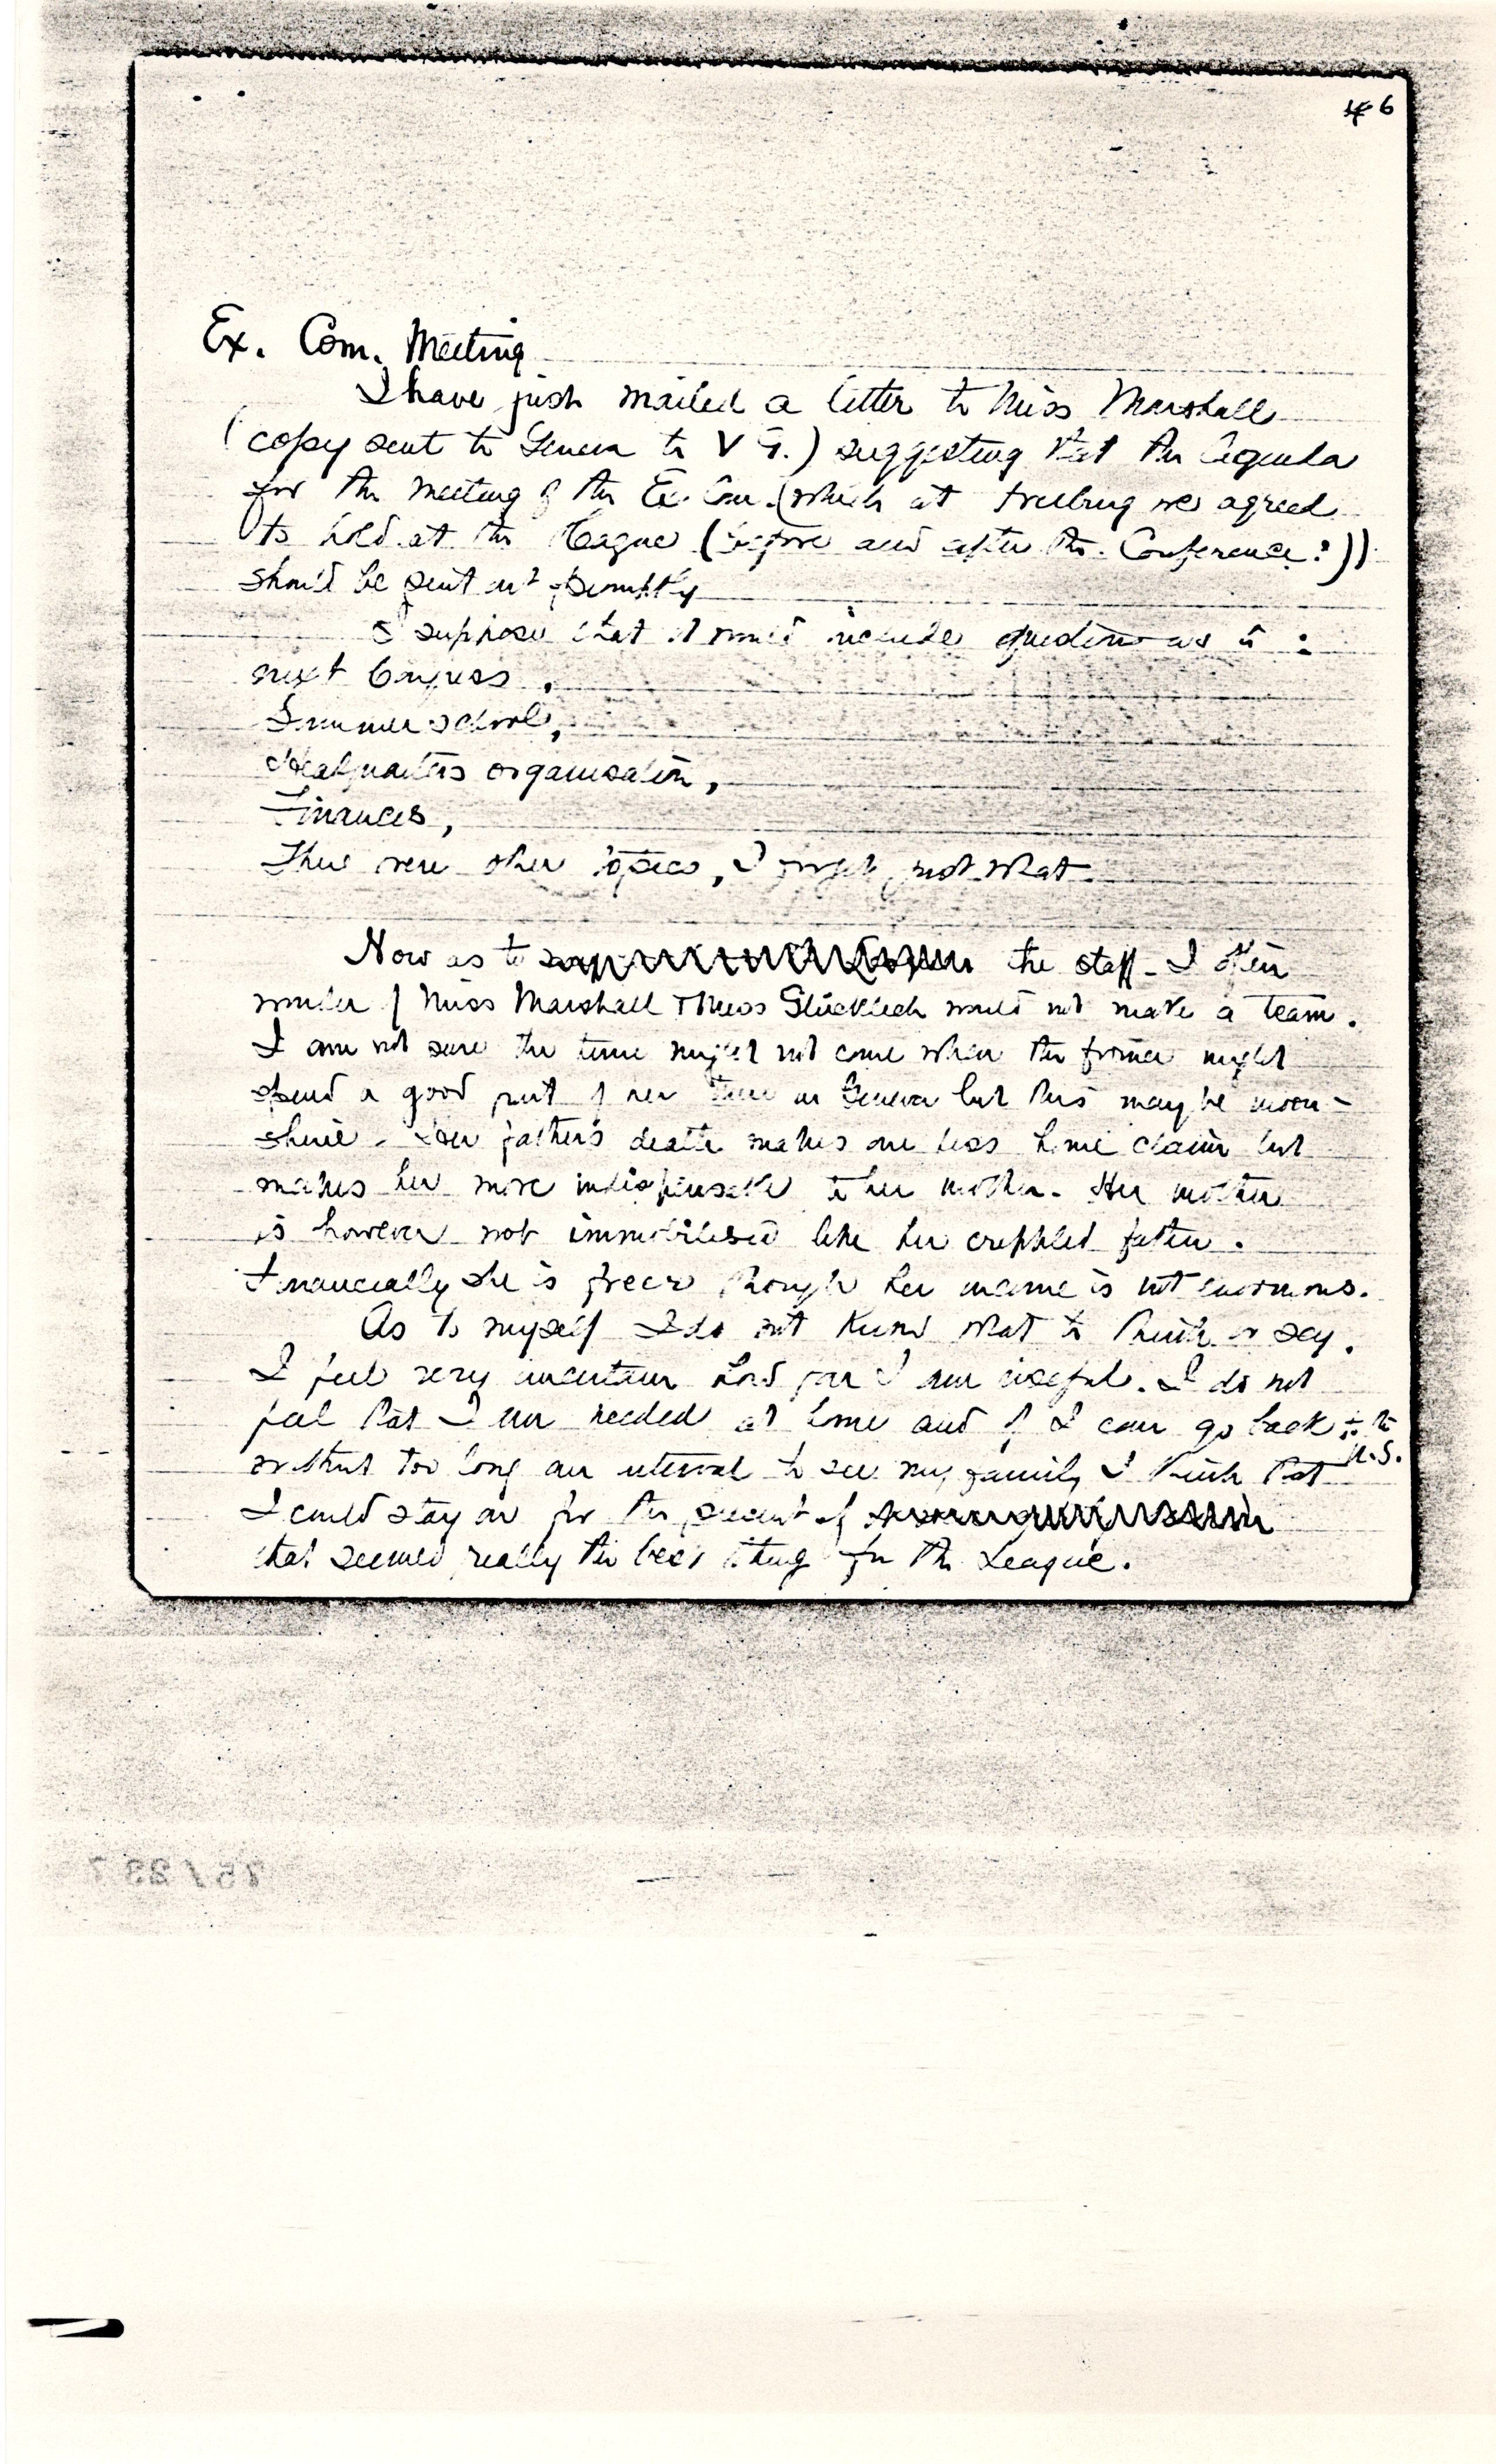 6
Ex. Com. Meeting
I have just mailed a letter to Miss Marshall
(copy sent to Geneva to V G.) suggesting that the agenda
for the meeting of the Ex. Com. (which at Freiburg we agreed
to hold at the Hague (before and after the Conference?))
should be sent out promptly
I suppose that it would include questions as to :
next Congress,
Summer school,
Headquarters organisation,
Finances,
There were other topics, I forget just what.
Now as to the staff - I often
wonder if Miss Marshall & Miss Glücklich would not make a team.
I am not sure the time might not come when the former might
spend a good part of her time in Geneva but this may be moon-
shine. Her father's death makes one less home claim but
makes her more indispensable to her mother. Her mother
is however not immobilised like her crippled father.
Financially she is freer though her income is not enormous.
As to myself I do not know what to think or say.
I feel very uncertain how far I am useful. I do not
feel that I am needed at home and if I can go back to the
U.S.
without too long an interval to see my family I think that
I could stay on for the present if
that seemed really the best thing for the League.
75/237